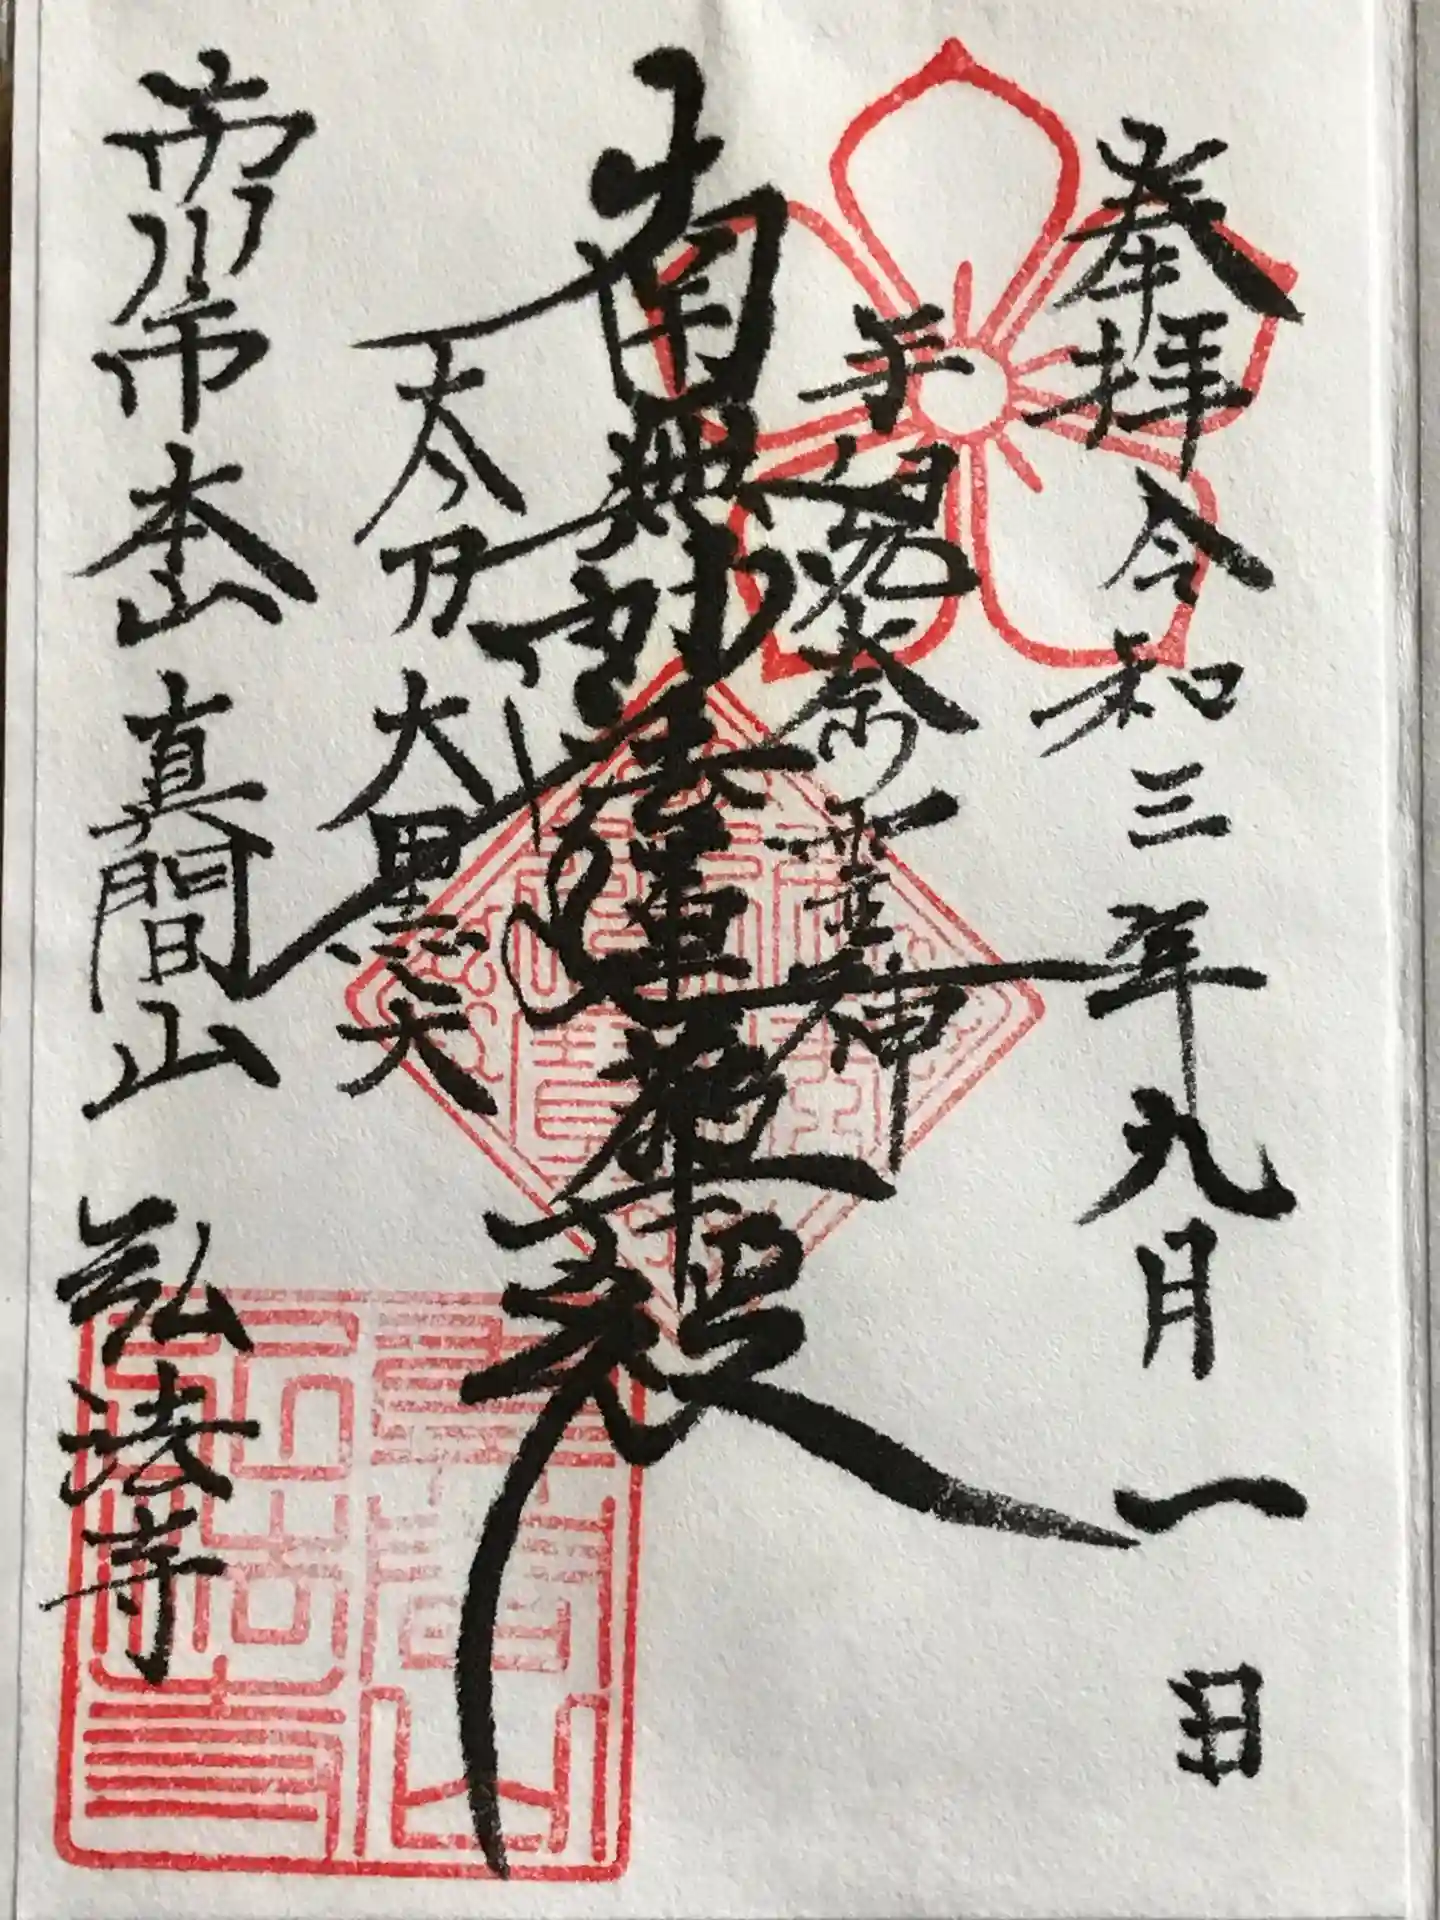 奉拝 令和三年九月一日
手兒奈霊神
南無妙法蓮華経
太刀大黒天
本山 真間山 弘法寺